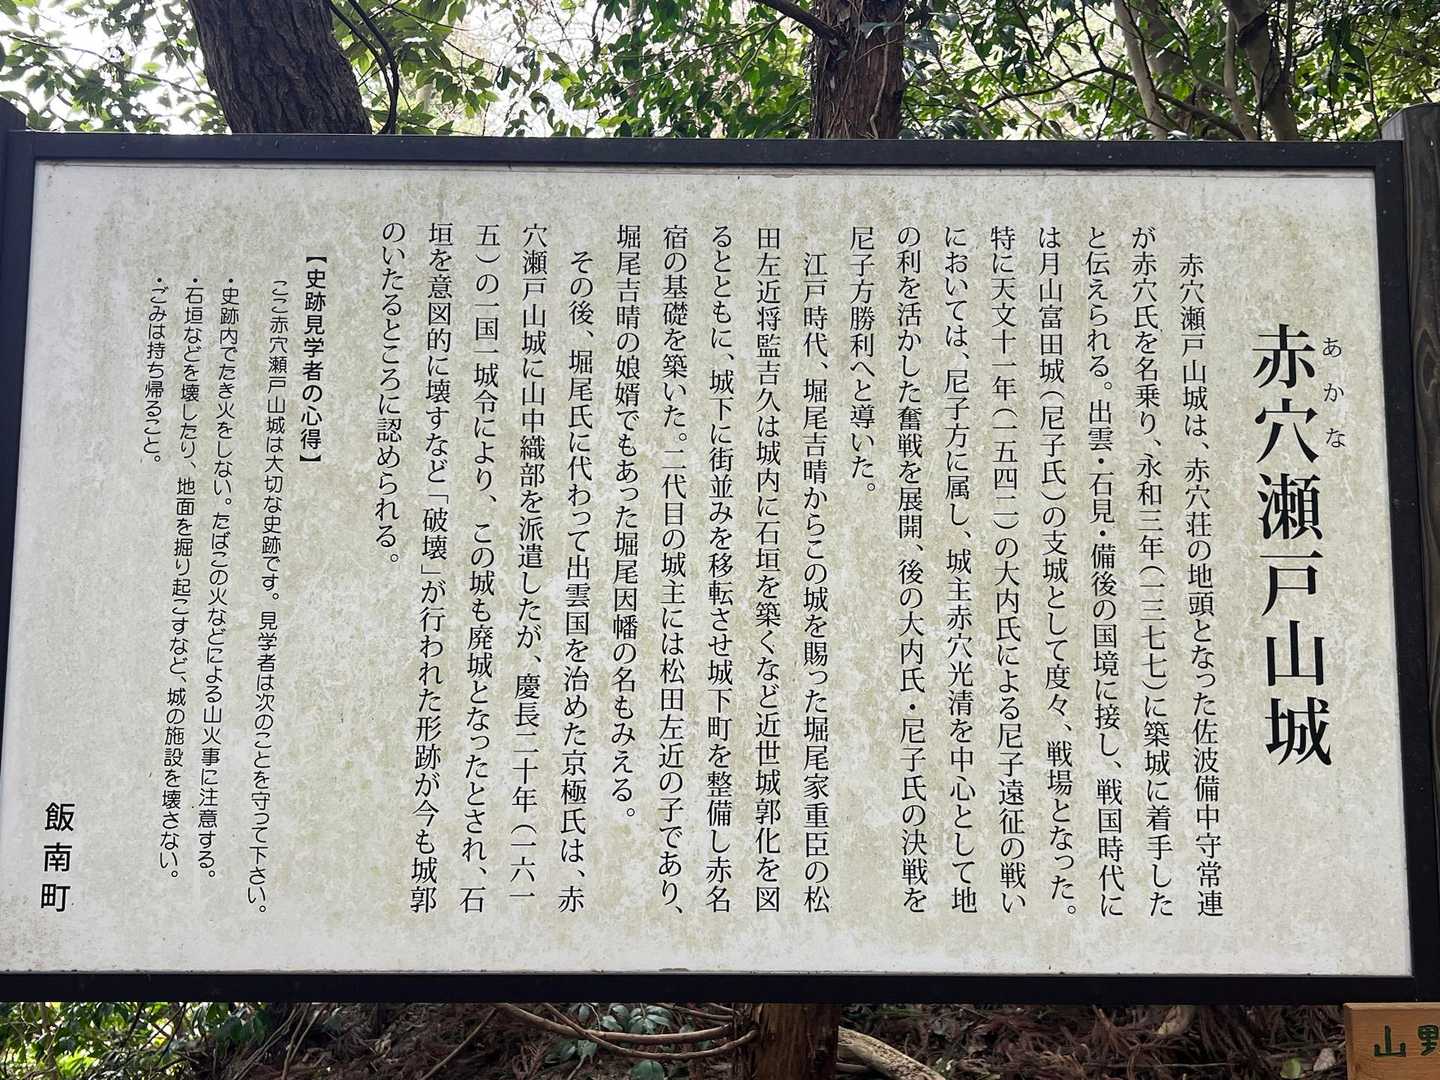 あかな
赤穴瀬戸山城
赤穴瀬戸山城は、赤穴荘の地頭となった佐波備中守常連
が赤穴氏を名乗り、永和三年(一三七七)に築城に着手した
と伝えられる。出雲・石見・備後の国境に接し、戦国時代に
は月山富田城(尼子氏)の支城として度々、戦場となった。
特に天文十一年(一五四二)の大内氏による尼子遠征の戦い
においては、尼子方に属し、城主赤穴光清を中心として地
の利を活かした奮戦を展開、後の大内氏・尼子氏の決戦を
尼子方勝利へと導いた。
江戸時代、堀尾吉晴からこの城を賜った堀尾家重臣の松
田左近将監吉久は城内に石垣を築くなど近世城郭化を図
るとともに、城下に街並みを移転させ城下町を整備し赤名
宿の基礎を築いた。二代目の城主には松田左近の子であり、
堀尾吉晴の娘婿でもあった堀尾因幡の名もみえる。
その後、堀尾氏に代わって出雲国を治めた京極氏は、赤
穴瀬戸山城に山中織部を派遣したが、慶長二十年(一六一
五)の一国一城令により、この城も廃城となったとされ、石
垣を意図的に壊すなど「破壊」が行われた形跡が今も城郭
のいたるところに認められる。
【史跡見学者の心得】
ここ赤穴瀬戸山城は大切な史跡です。見学者は次のことを守って下さい。
・史跡内でたき火をしない。たばこの火などによる山火事に注意する。
・石垣などを壊したり、地面を掘り起こすなど、城の施設を壊さない。
・ごみは持ち帰ること。
飯南町
山野